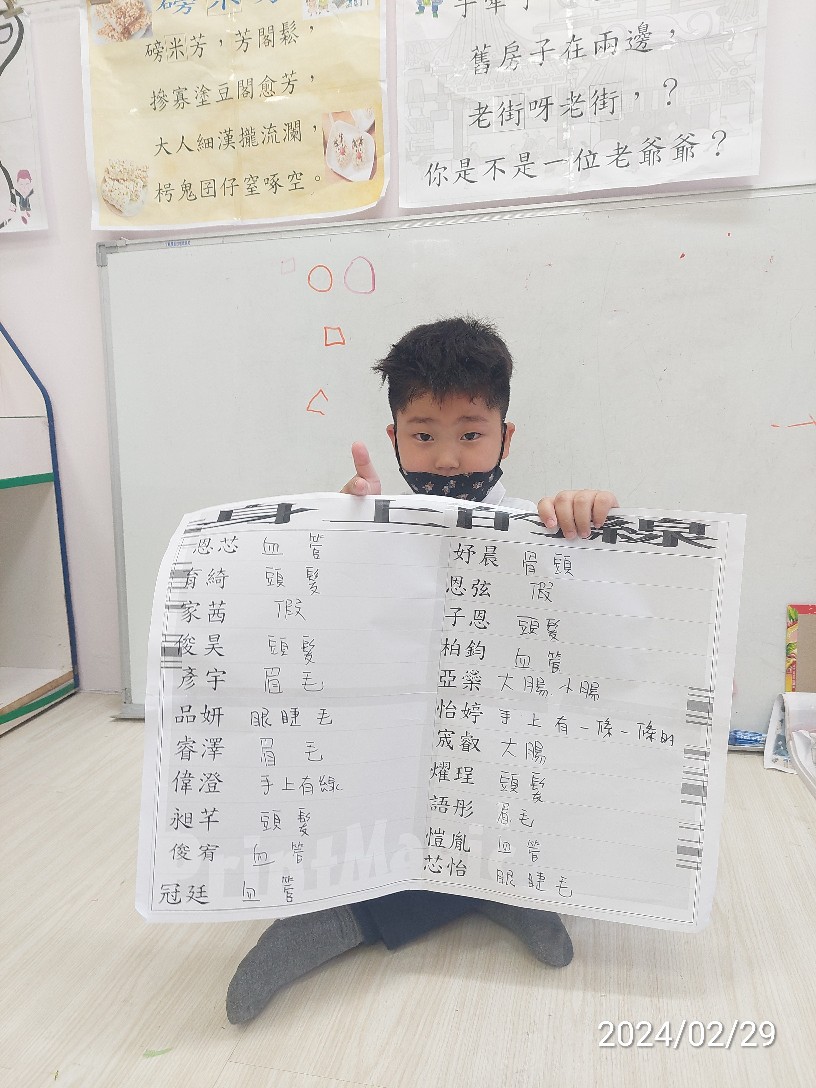 磅米芳,芳閣鬆,
摻寡塗豆閣愈芳,
大人細漢攏流瀾,
枵鬼囝仔窒啄空。
舊房子在兩邊,
老街呀老街,?
你是不是一位老爺爺?
身上的線
恩芯 血管
育綺 頭髮
家茜 假
俊昊 頭髮
彥宇 眉毛
品妍 眼睫毛
睿澤 眉毛
偉澄 手上有線
昶芊 頭髮
俊宥 血管
冠廷 血管
妤晨 骨頭
恩弦 假
子恩 頭髮
柏鈞 血管
亞樂 大腸 小腸
怡婷 手上有一條一條的
宬叡 大腸
燿珵 頭髮
語彤 眉毛
愷胤 血管
芯怡 眼睫毛
PrintMa
2024/02/29